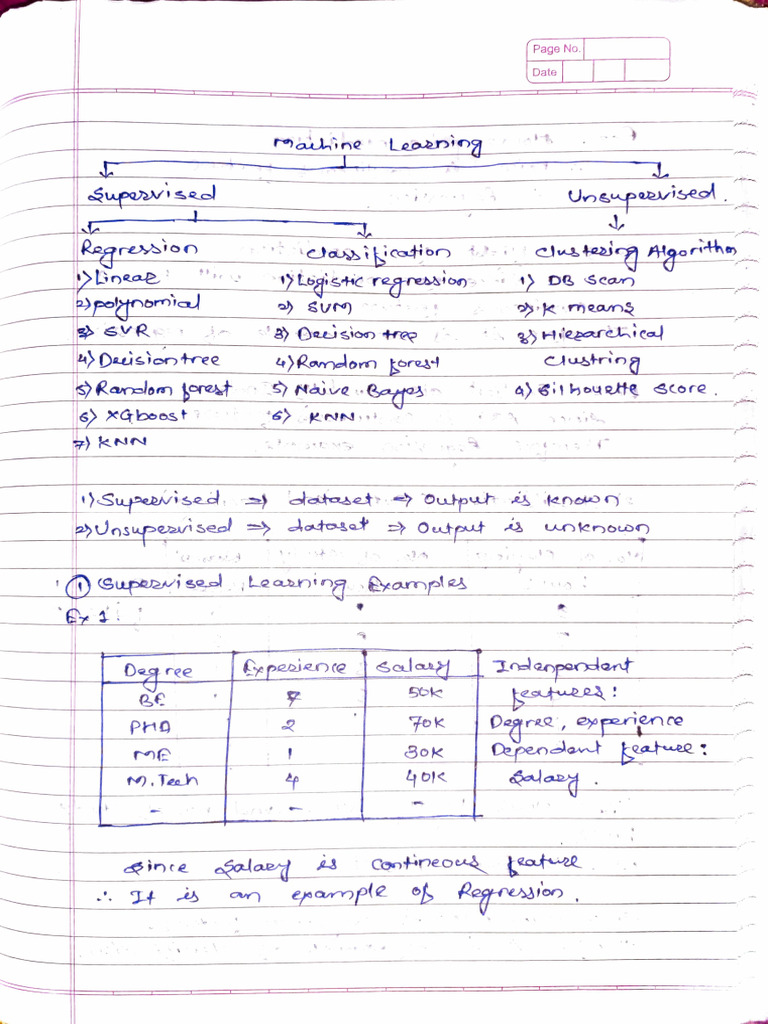 Page No.
Date
Machine Learning
Supervised Unsupervised.
Regression Classification Clustering Algorithm
1) Linear 1) Logistic regression 1) DB scan
2) polynomial 2) SVM 2) K means
3) SVR 3) Decision tree 3) Hierarchical
4) Decision tree 4) Random forest Clustring
5) Random forest 5) Naive Bayes 4) Silhouette Score.
6) XGboost 6) KNN
7) KNN
1) Supervised ⇒ dataset ⇒ Output is known
2) Unsupervised ⇒ dataset ⇒ Output is unknown
① Supervised Learning Examples
Ex 1:
Degree Experience Salary Indenpendent
BE 7 50K features:
PHD 2 70K Degree, experience
ME 1 30K Dependent feature:
M.Tech 4 40K Salary.
- - -
Since Salary is contineous feature
∴ It is an example of Regression.